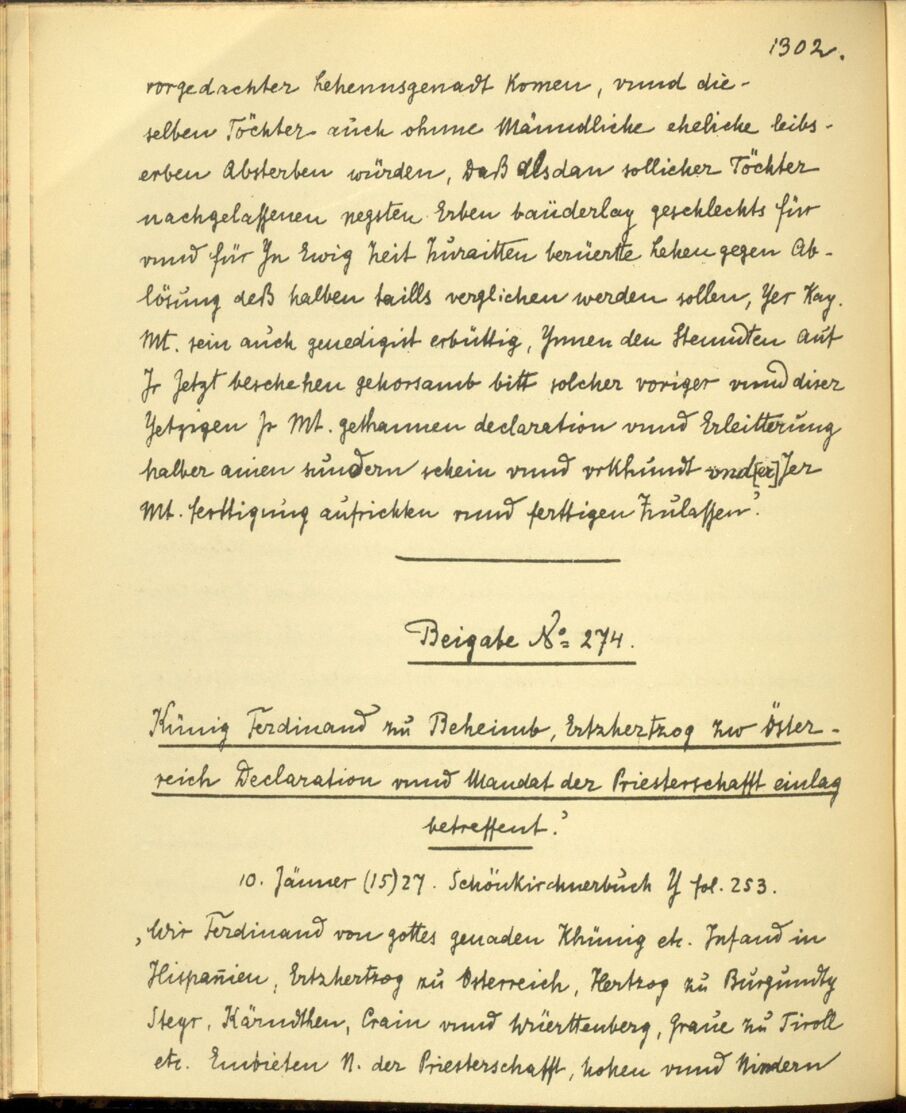 1302.
vorgedachter Lehennsgenadt komen, vnnd die-
selben Töchter auch ohnne Männdliche eheliche leibs-
erben Absterben würden, Daß alsdan sollicher Töchter
nachgelassenen negsten Erben baüderlay geschlechts für
vnnd für Jn Ewig Zeit Zuraitten berüertte Lehen gegen Ab-
lösung deß halben taills verglichen werden sollen, Yer Kay.
Mt. sein auch genedigist erbüttig, Ynnen den Stenndten auf
Jr Jetzt beschehen gehorsamb bitt solcher voriger vnnd diser
Yetzigen Jr Mt. gethannen declaration vnnd Erleitterung
halber ainen sundern schein vnnd vrkhundt vnd[er] Jer
Mt. ferttigung aufrichten vnnd ferttigen Zulassen.'
Beigabe No. 274.
Künig Ferdinand zu Beheimb, Ertzhertzog zw Öster-
reich Declaration vnnd Mandat der Priesterschafft einlag
betreffent.'
10. Jänner (15)27. Schönkirchnerbuch Y fol. 253.
‚Wir Ferdinand von gottes genaden Khünig etc. Infand in
Hispanien, Ertzhertzog zu Osterreich, Hertzog zu Burgundty
Steyr, Kärndthen, Crain vnnd Württenberg, Graue zu Tiroll
etc. Embieten N. der Priesterschafft, hohen vnnd Nindern